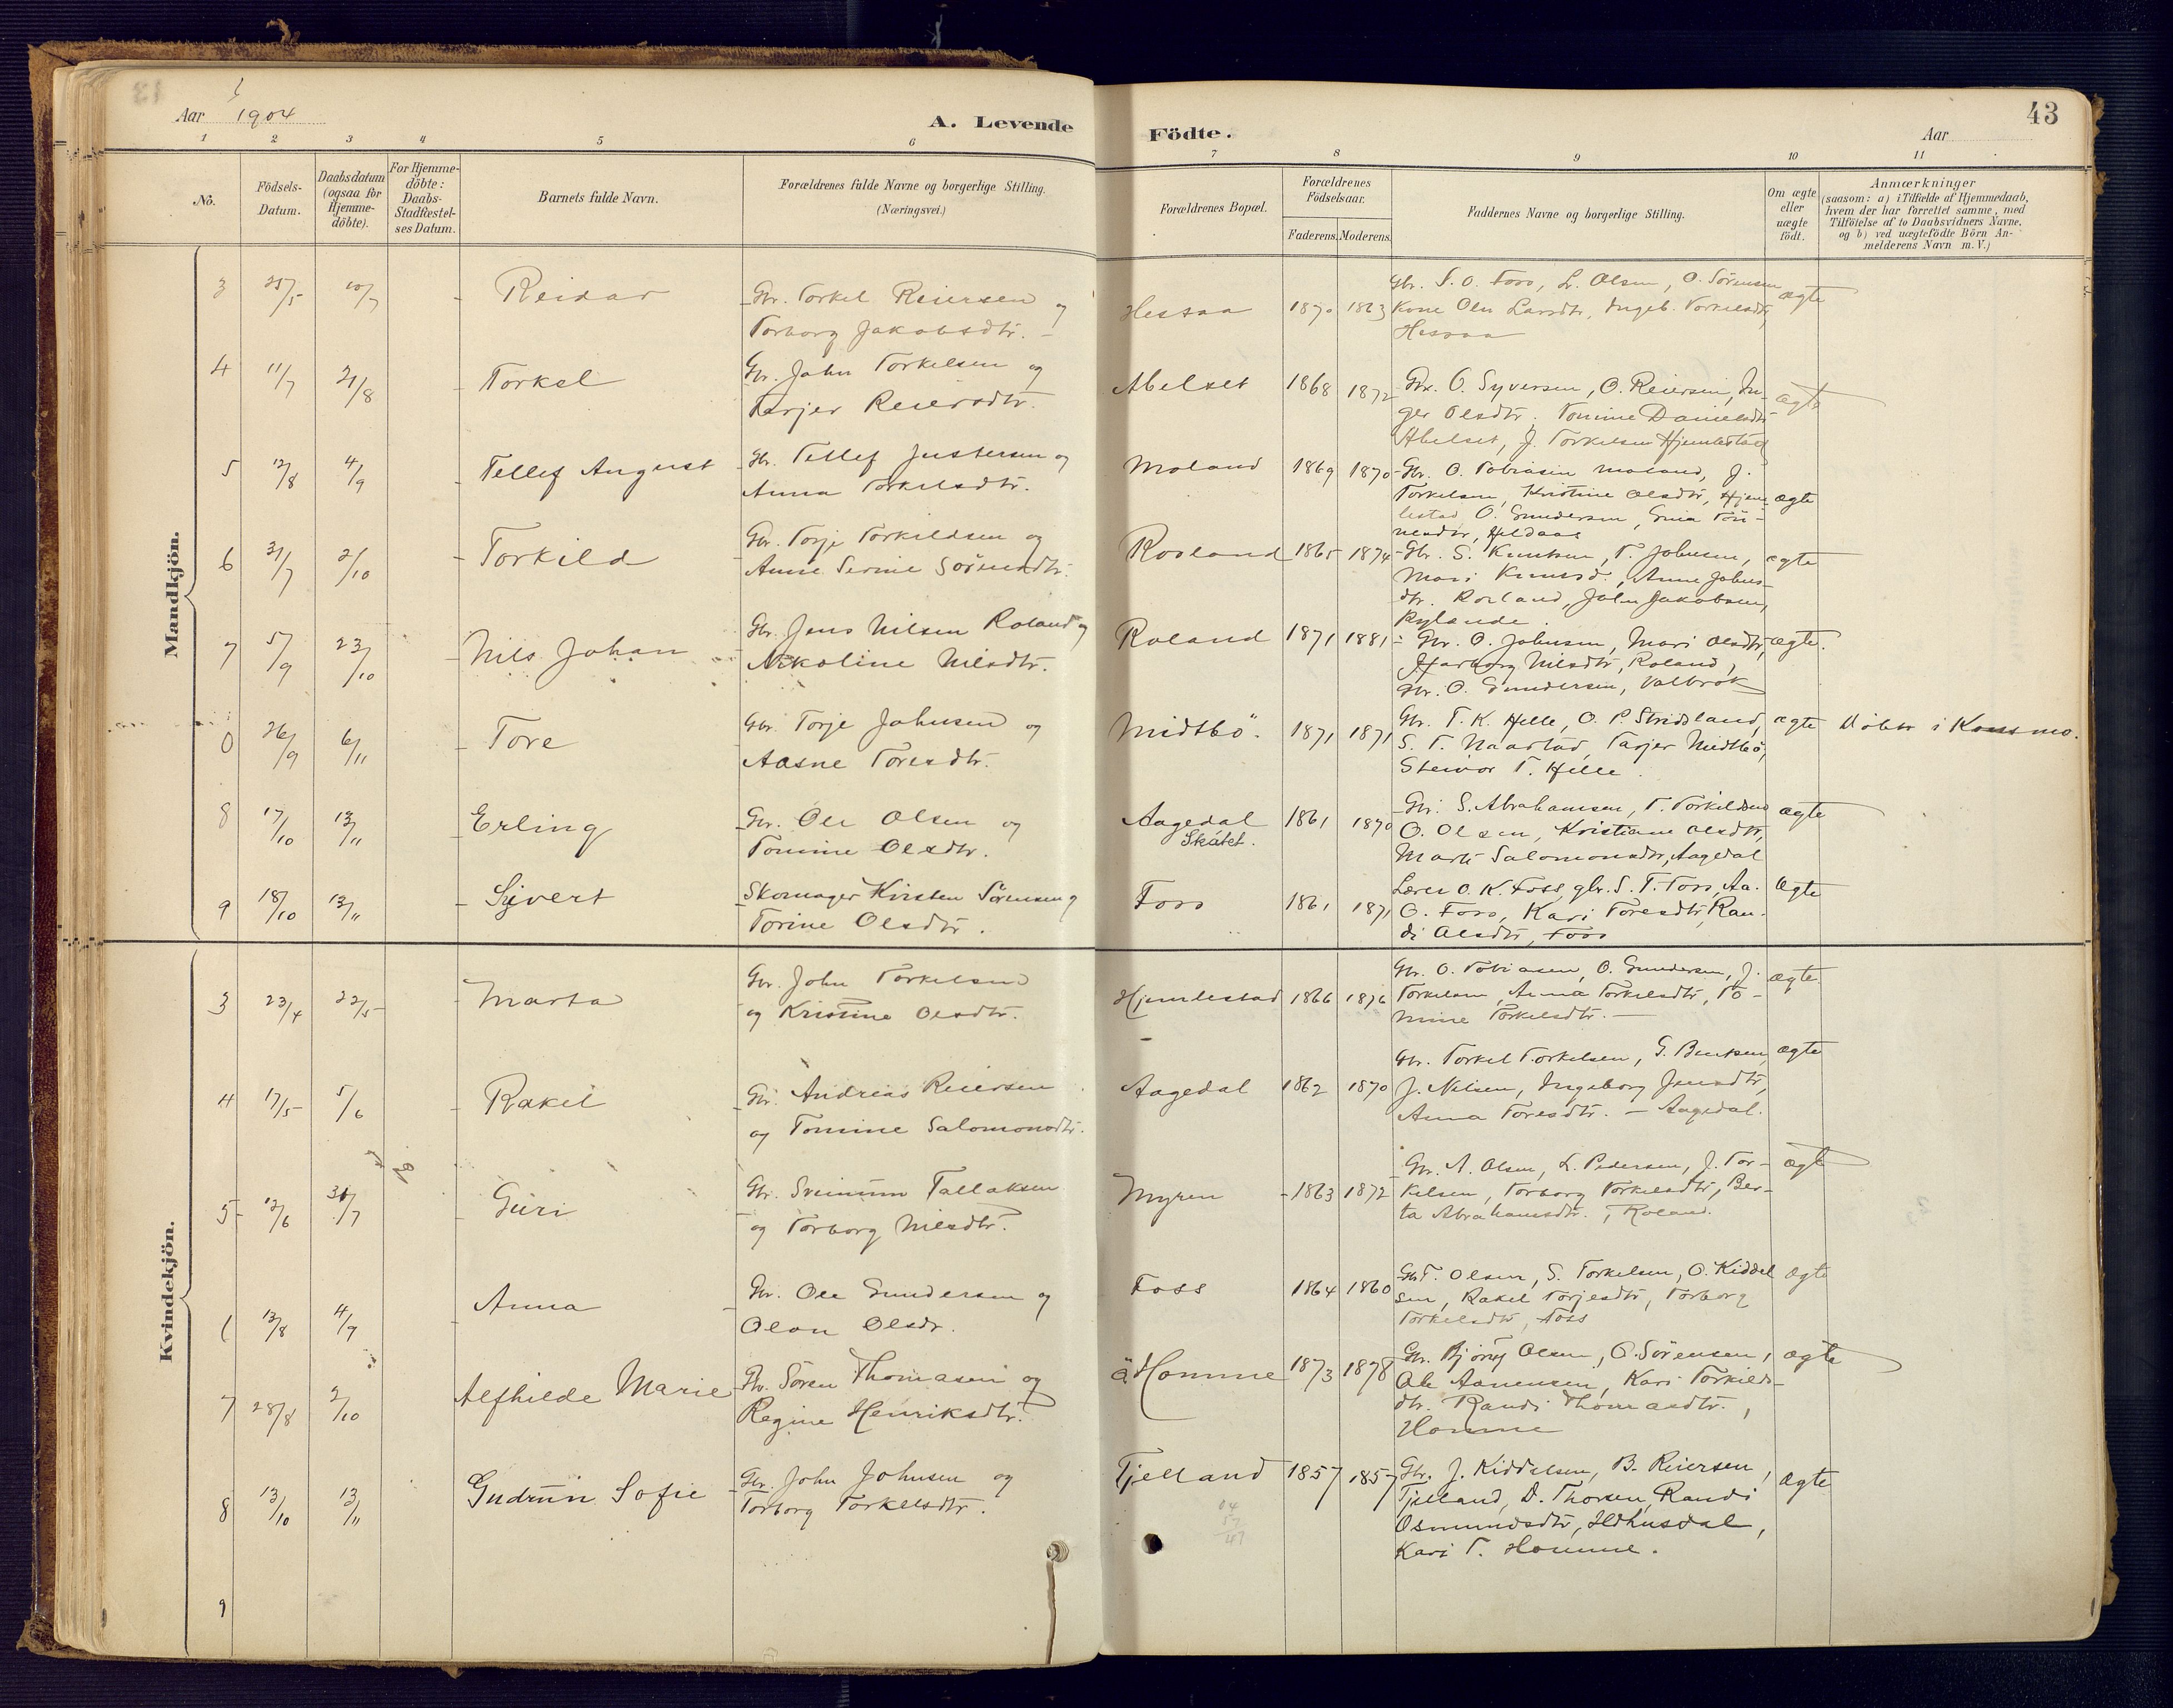 Aar 1904
A. Levende
Födte.
Aar
43
1 2 3 4 5 6 7 8 9 10 11
No.
Födsels-
Datum.
Daabsdatum
(ogsaa för
Hjemme-
döbte).
For Hjemme-
döbte:
Daabs-
Stadfæstel-
ses Datum.
Barnets fulde Navn.
Forældrenes fulde Navne og borgerlige Stilling.
(Næringsvei.)
Forældrenes Bopæl.
Forældrenes
Födselsaar.
Faderens. Moderens.
Faddernes Navne og borgerlige Stilling.
Om ægte
eller
uægte
födt.
Anmærkninger
(saasom: a) i Tilfælde af Hjemmedaab,
hvem der har forrettet samme, med
Tilföielse af to Daabsvidners Navne,
og b) ved uægtefödte Börn An-
melderens Navn m. V.)
Mandkjön.
3 25/5 10/7 Reidar
Gbr. Torkel Reiersen og
Torborg Jakobsdtr.
Hessaa 1870 1863
Gbr. T. O. Foss, L. Olsen, O. Sörensen
Kone Olu Larsdtr, Ingeb. Torkelsdtr,
Hessaa
ægte
4 11/7 21/8 Torkel
Gbr. John Torkelsen og
Tarjer Reiersdtr.
Abelset 1868 1872
Gbr. O. Syversen, O. Reiersen, In-
ger Olsdtr. Tomine Danielsdtr
Abelset, J. Torkelsen Hjemlestad
ægte
5 12/8 4/9 Tellef August
Gbr. Tellef Justersen og
Anna Torkelsdtr.
Moland 1869 1870
Gbr. O. Tobiasen Moland, J.
Torkelsen, Kristine Olsdtr, Hjem-
lestad O. Gundersen,
ægte
6 31/7 2/10 Torkild
Gbr. Torje Torkildsen og
Anne Serine Sörensdtr.
Rosland 1865 1874
Gbr. S. Knutsen, T. Johnsen,
Mari Knutsd., Anne Johns-
dtr. Rosland, John Jakobsen,
Rylande.
ægte
7 5/9 23/10 Nils Johan
Gbr. Jens Nilsen Roland og
Nikoline Nilsdtr.
Roland 1871 1881
Gbr. O. Johnsen, Mari Olsdtr,
Harborg Nilsdtr, Roland,
Gbr. O. Gundersen, Valbrok
ægte.
0 26/9 6/11 Tore
Gbr. Torje Johnsen og
Aasne Toresdtr.
Midtbö. 1871 1871
Gbr. T. K. Helle, O. P. Stridsland,
S. T. Naastad, Tarjer Midtbö,
Steinor T. Helle.
ægte
Döbt i Konsmo.
8 17/10 13/11 Erling
Gbr. Ole Olsen og
Tomine Olsdtr.
Aagedal
Skåtet.
1861 1870
Gbr. S. Abrahamsen, T. Torkildsen
O. Olsen, Kristiane Olsdtr,
Marte Salomonsdtr, Aagedal
ægte
9 18/10 13/11 Syvert
Skomager Kristen Sörensen og
Torine Olsdtr.
Foss 1861 1871
Lærer O. K. Foss, gbr. S. T. Foss, Aa.
O. Foss, Kari Toresdtr, Ran-
di Olsdtr, Foss
ægte
Kvindekjön.
3 23/4 22/5 Marta
Gbr. John Torkelsen
og Kristine Olsdtr.
Hjemlestad 1866 1876
Gbr. O. Tobiasen, O. Gundersen, J.
Torkelsen, Anna Torkelsdtr, To-
mine Torkelsdtr.
ægte
4 17/5 5/6 Rakel
Gbr. Andreas Reiersen
og Tomine Salomonsdtr.
Aagedal 1862 1870
Gbr. Torkel Torkelsen, G. Bentsen
J. Nilsen, Ingeborg Jensdtr,
Anna Toresdtr. - Aagedal.
ægte
5 12/6 31/7 Guri
Gbr. Sveinum Tallaksen
og Torborg Nilsdtr.
Myren 1863 1872
Gbr. A. Olsen, L. Pedersen, J. Tor-
kelsen, Torborg Torkelsdtr, Ber-
ta Abrahamsdtr., Roland.
ægte
6 13/8 4/9 Anna
Gbr. Ole Gundersen og
Olou Olsdr.
Foss 1864 1860
Gbr. T. Olsen, S. Torkelsen, O. Kiddel
sen, Rakel Torjesdtr, Torborg
Torkelsdtr, Foss
ægte
7 28/8 2/10 Alfhilde Marie
Gbr. Sören Thomasen og
Regine Henriksdtr.
Homme 1873 1878
Gbr. Olsen, O. Sörensen,
Ole Aanensen, Kari Torkilds-
dtr. Randi Thomasdtr.,
Homme
ægte
8 13/10 13/11 Gudrun Sofie
Gbr. John Johnsen og
Torborg Torkelsdtr.
Tjelland 1857 1857
Gbr. J. Kiddelsen, B. Reiersen,
Tjelland, D. Thorsen, Randi
Osmundsdtr, Ildhusdal,
Kari T. Homme.
ægte
04
57
47
9